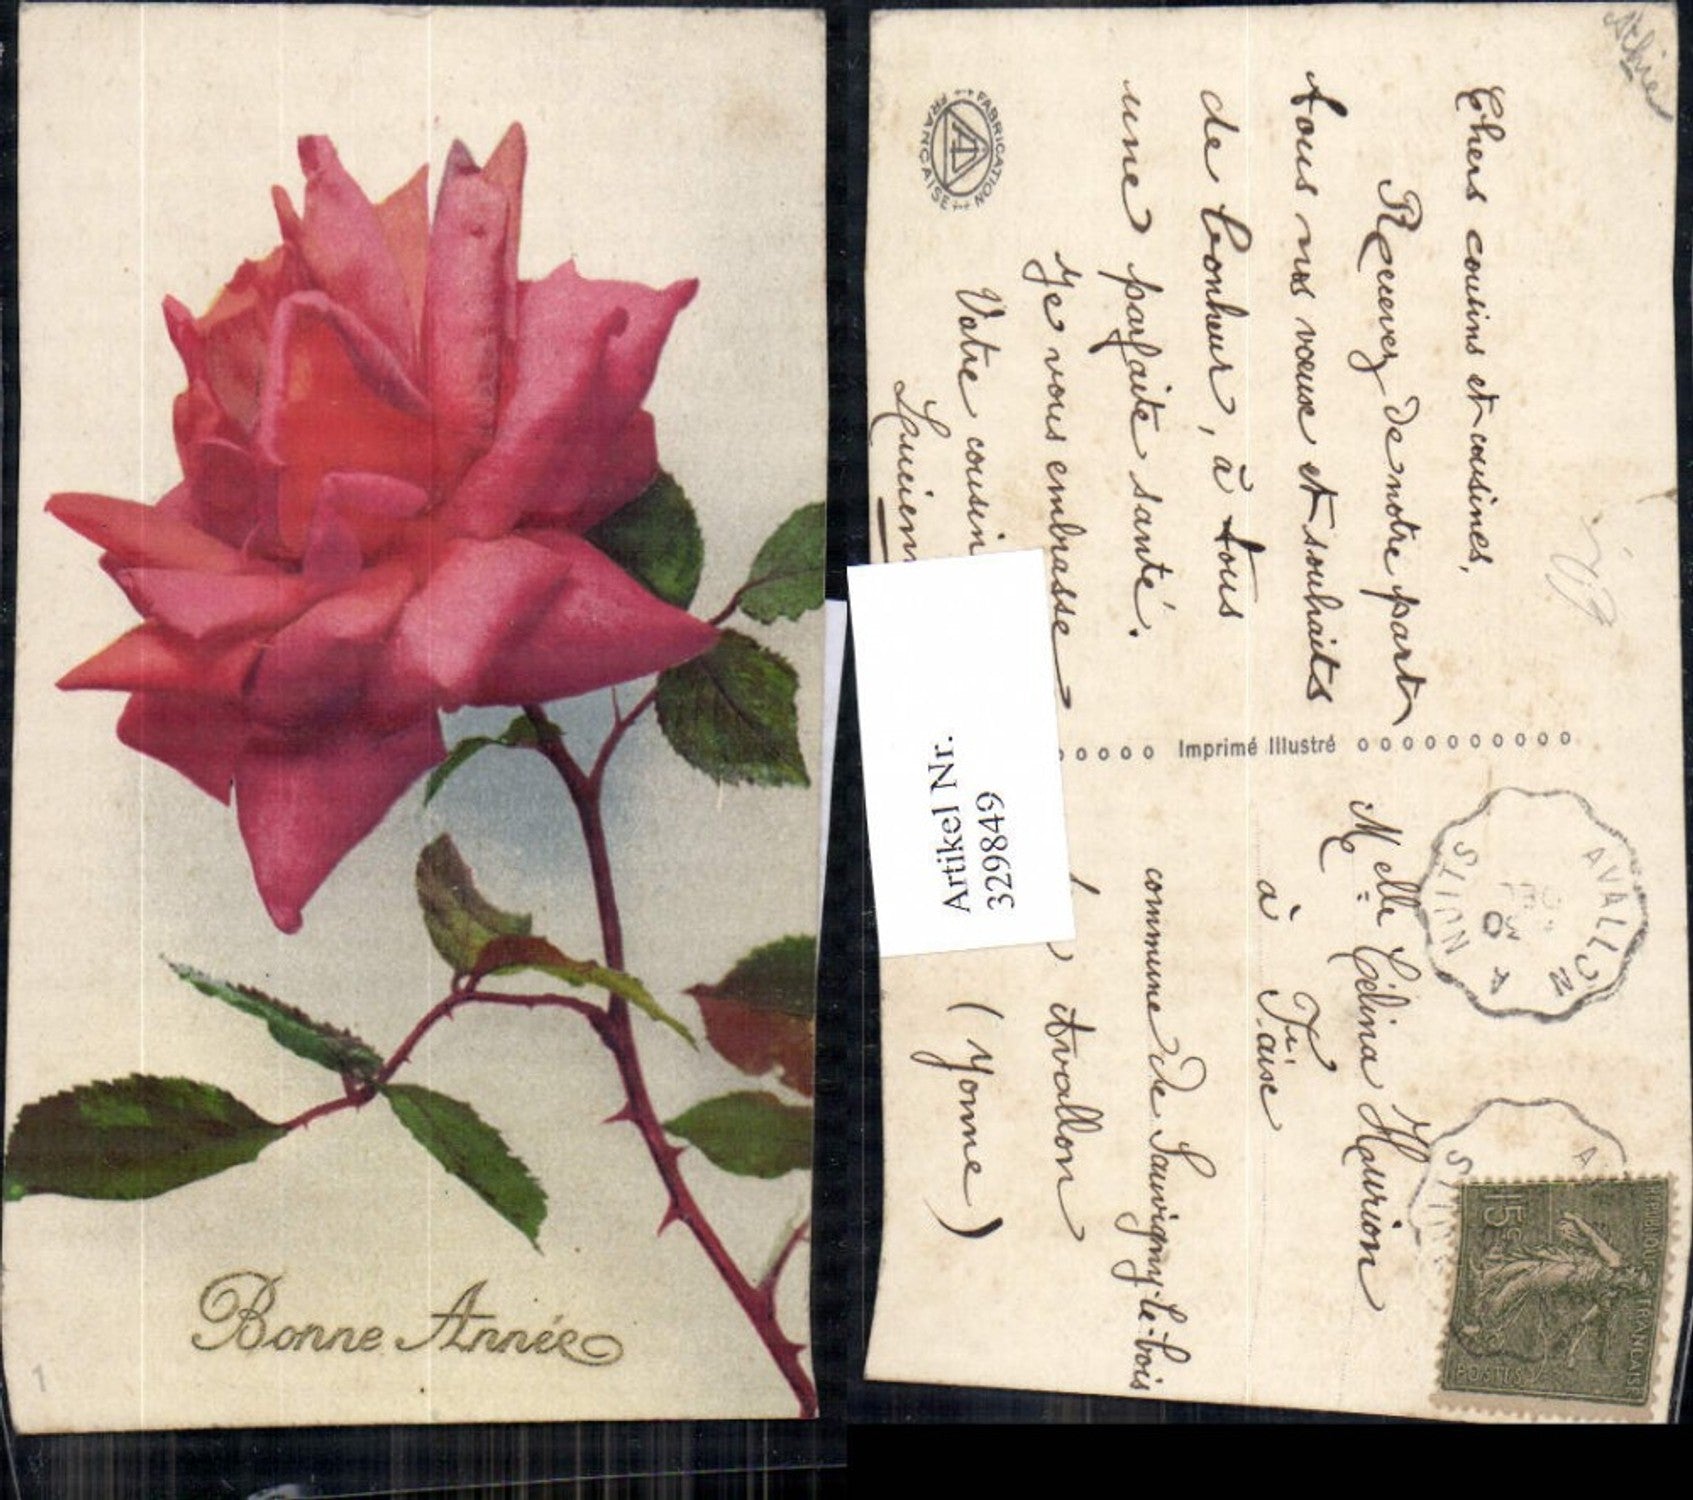 Bonne Année
1
Chers cousins et cousines,
Recevez de notre part
tous nos vœux et souhaits
de bonheur, à tous
une parfaite santé.
Je vous embrasse
Votre cousin
Lucien
FABRICATION FRANÇAISE
Imprimé Illustré
Artikel Nr.
3298849
AVALLON
Melle Célina Hourion
à
commune de Sauvigny-le-bois
Avallon
(Yonne)
15c
REPUBLIQUE FRANÇAISE
POSTES